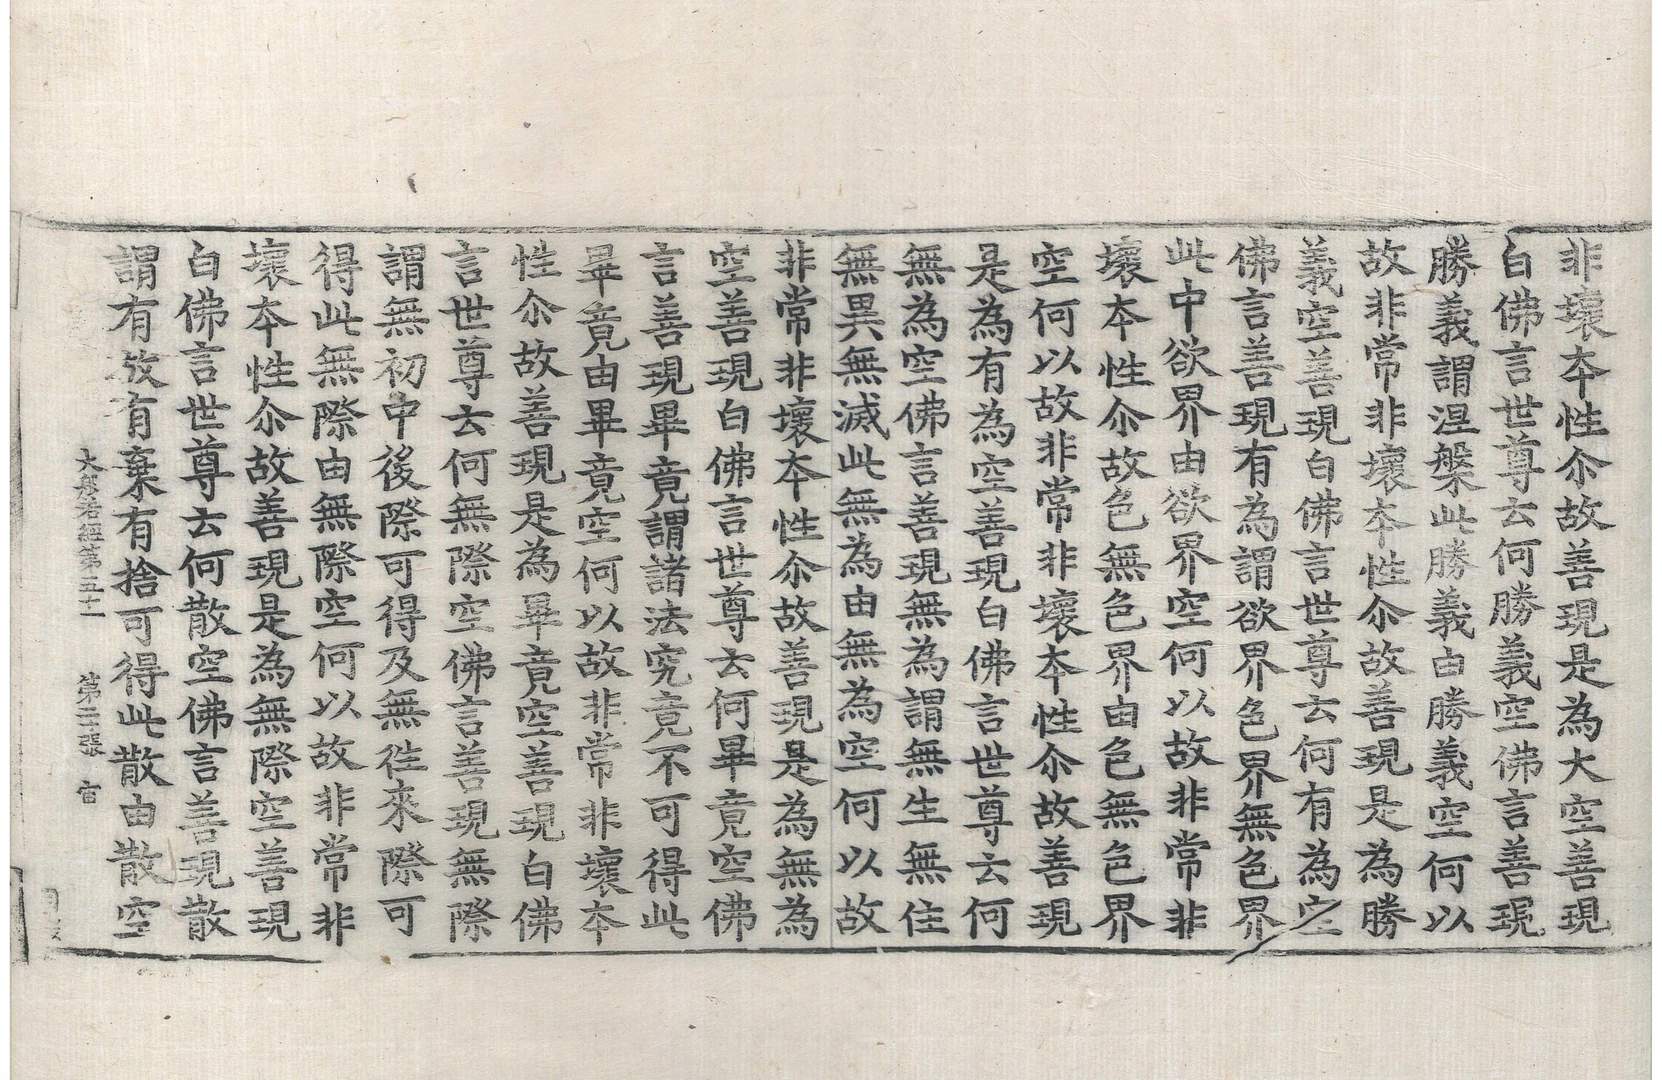 非壞本性尒故善現是為大空善現
白佛言世尊云何勝義空佛言善現
勝義謂涅槃此勝義由勝義空何以
故非常非壞本性尒故善現是為勝
義空善現白佛言世尊云何有為空
佛言善現有為謂欲界色界無色界
此中欲界由欲界空何以故非常非
壞本性尒故色無色界由色無色界
空何以故非常非壞本性尒故善現
是為有為空善現白佛言世尊云何
無為空佛言善現無為謂無生無住
無異無滅此無為由無為空何以故
非常非壞本性尒故善現是為無為
空善現白佛言世尊云何畢竟空佛
言善現畢竟謂諸法究竟不可得此
畢竟由畢竟空何以故非常非壞本
性尒故善現是為畢竟空善現白佛
言世尊云何無際空佛言善現無際
謂無初中後際可得及無往來際可
得此無際由無際空何以故非常非
壞本性尒故善現是為無際空善現
白佛言世尊云何散空佛言善現散
謂有放有棄有捨可得此散由散空
大般若經第五十一 第二張 宙